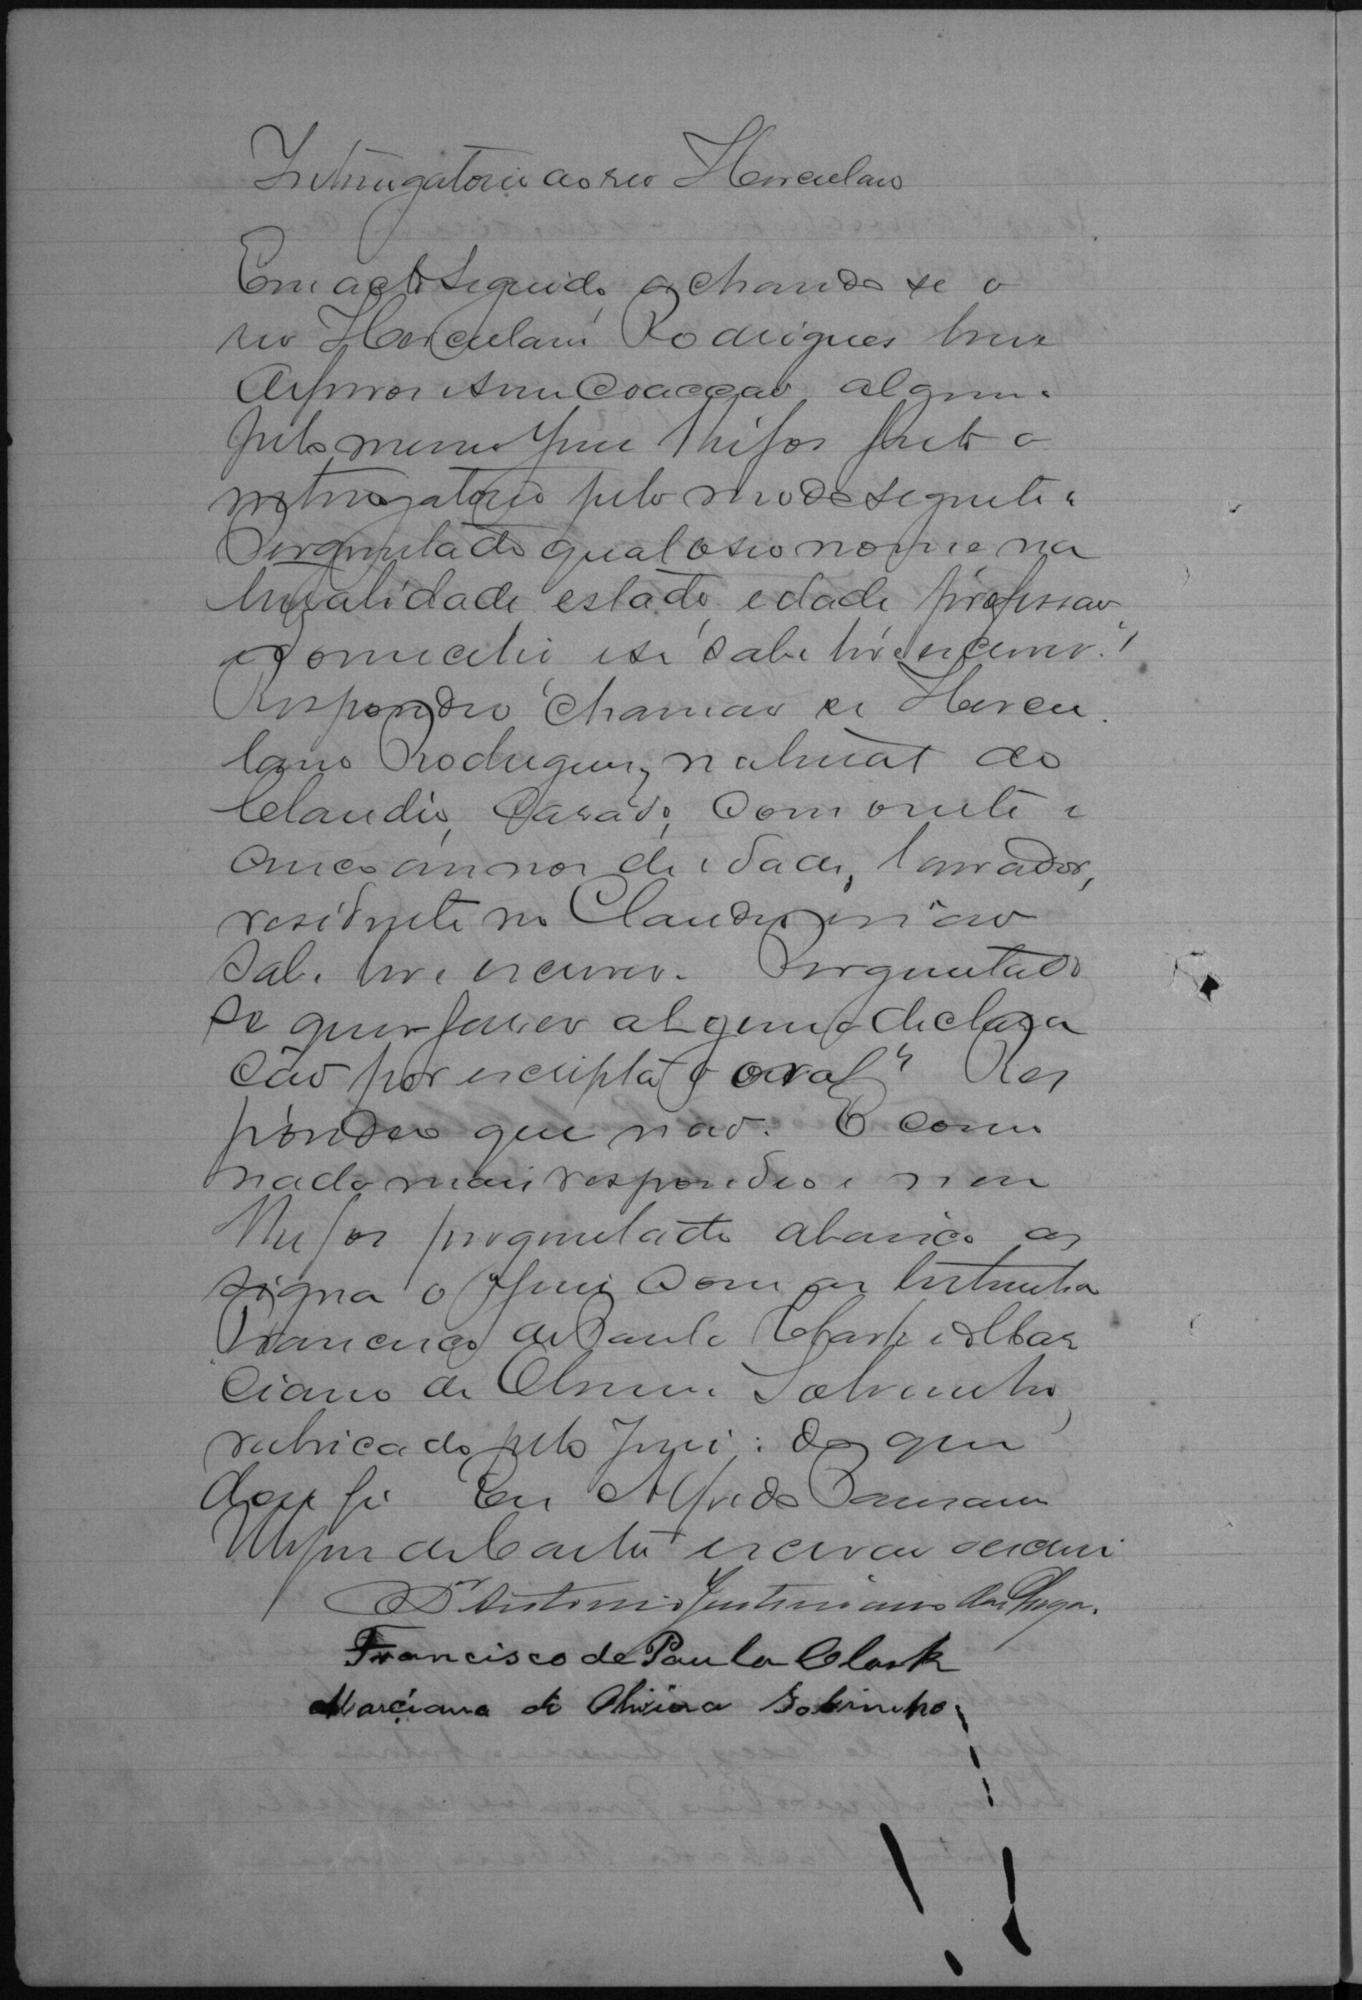 Interrogatorio ao reo Herculano
Em acto seguido, achando se o
reo Herculano Rodrigues livre
de ferros e sem coacção alguma
pelo mesmo Juiz lhe foi feito o
interrogatorio pelo modo seguinte:
Perguntado qual o seo nome na
turalidade estado, edade profissão,
e domicilio e se sabe ler e escrever?
Respondeo chamar se Hercu
lano Rodrigues, natural do
Claudio, casado, com oitenta e
cinco annos de idade, lavrador,
residente no Claudio e não
sabe ler e escrever. Perguntado
se quer fazer alguma declara
ção por escripta o oral? Res
pondeo que não. E como
nada mais respondeo e nem
lhe foi perguntado abaixo as
signa o Juiz com as testemunhas
Francisco de Paula Clark e Mar
ciano de Oliveira Sobrinho,
rubricado pelo Juiz; do que
dou fé Eu Alfredo
de Castro escrivão escrevi
Dr Antonio Justiniano das Chagas.
Francisco de Paula Clark
Marciano de Oliveira Sobrinho